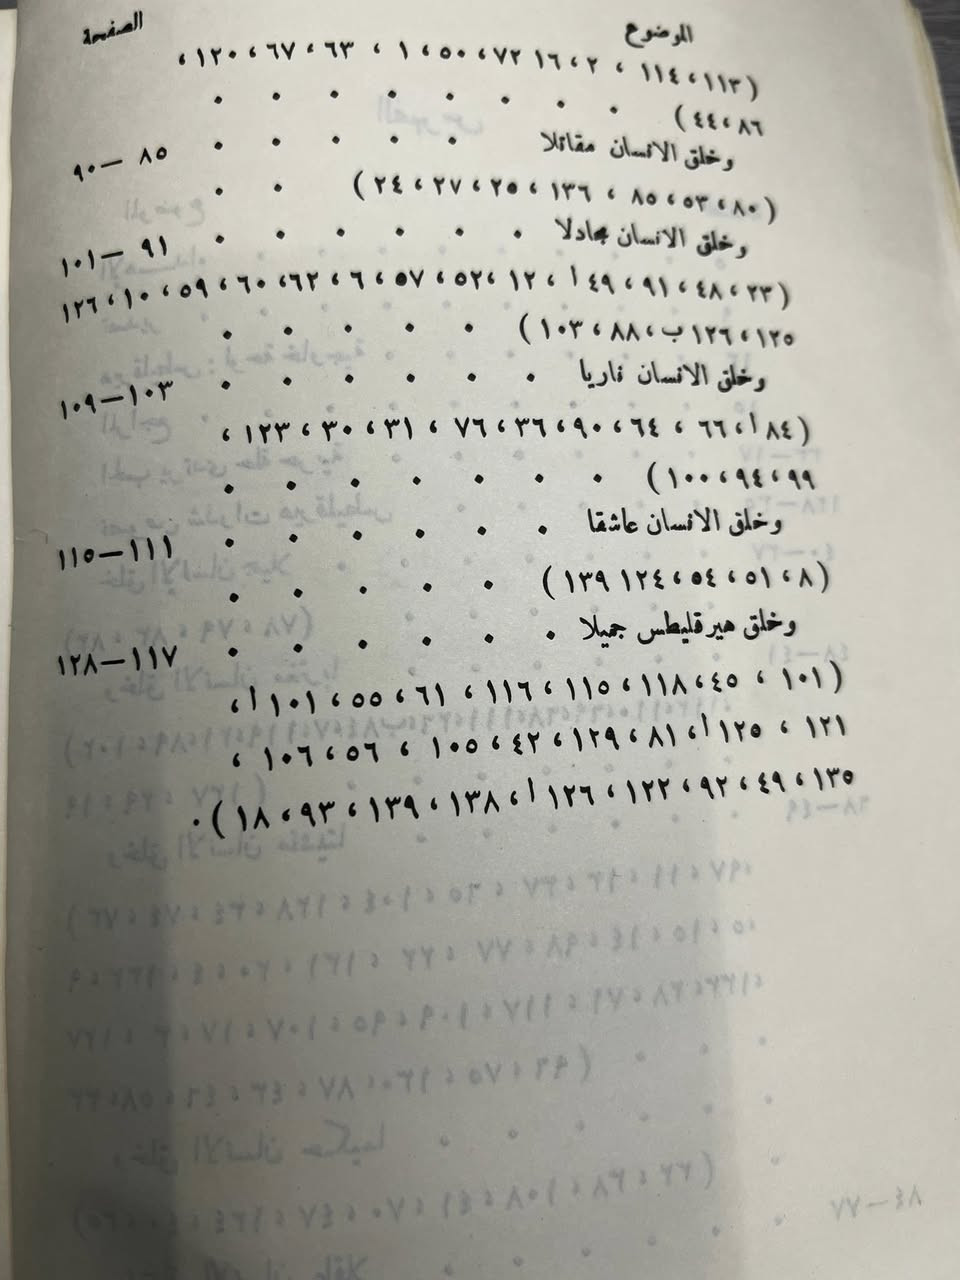 الموضوع الصفحة
(١١٣ ، ١١٤ ، ٢ ، ١٦ ٧٢ ، ٥٠ ، ١ ، ٦٣ ، ٦٧ ، ١٢٠ ،
٨٦ ، ٤٤) . . . . . . . .
وخلق الانسان مقاتلا . . . . . ٨٥ — ٩٠
(٨٠ ، ٥٣ ، ٨٥ ، ١٣٦ ، ٢٥ ، ٢٧ ، ٢٤) . .
وخلق الانسان مجادلا . . . . . . ٩١ — ١٠١
(٢٣ ، ٤٨ ، ٩١ ، ٤٩ أ ، ١٢ ، ٥٢ ، ٥٧ ، ٦ ، ٦٢ ، ٦٠ ، ٥٩ ، ١٠ ، ١٢٦
١٢٥ ، ١٢٦ ب ، ٨٨ ، ١٠٣) . . . . .
وخلق الانسان ناريا . . . . . . ١٠٣—١٠٩
(٨٤ أ ، ٦٦ ، ٦٤ ، ٩٠ ، ٣٦ ، ٧٦ ، ٣١ ، ٣٠ ، ١٢٣ ،
٩٩ ، ٩٤ ، ١٠٠) . . . . . . .
وخلق الانسان عاشقا . . . . . . ١١١—١١٥
(٨ ، ٥١ ، ٥٤ ، ١٢٤ ١٣٩) . . . . .
وخلق هيرقليطس جميلا . . . . . . ١١٧—١٢٨
(١٠١ ، ٤٥ ، ١١٨ ، ١١٥ ، ١١٦ ، ٦١ ، ٥٥ ، ١٠١ أ ،
١٢١ ، ١٢٥ أ ، ٨١ ، ١٢٩ ، ٤٢ ، ١٠٥ ، ٥٦ ، ١٠٦ ،
١٣٥ ، ٤٩ ، ٩٢ ، ١٢٢ ، ١٢٦ أ ، ١٣٨ ، ١٣٩ ، ٩٣ ، ١٨) .